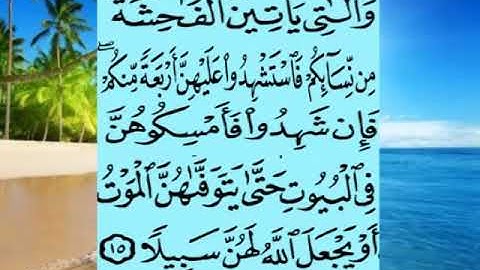 وَٱلَّٰتِى يَأْتِينَ ٱلْفَٰحِشَةَ
مِن نِّسَآئِكُمْ فَٱسْتَشْهِدُوا۟ عَلَيْهِنَّ أَرْبَعَةً مِّنكُمْ ۖ
فَإِن شَهِدُوا۟ فَأَمْسِكُوهُنَّ
فِى ٱلْبُيُوتِ حَتَّىٰ يَتَوَفَّىٰهُنَّ ٱلْمَوْتُ
أَوْ يَجْعَلَ ٱللَّهُ لَهُنَّ سَبِيلًا ١٥